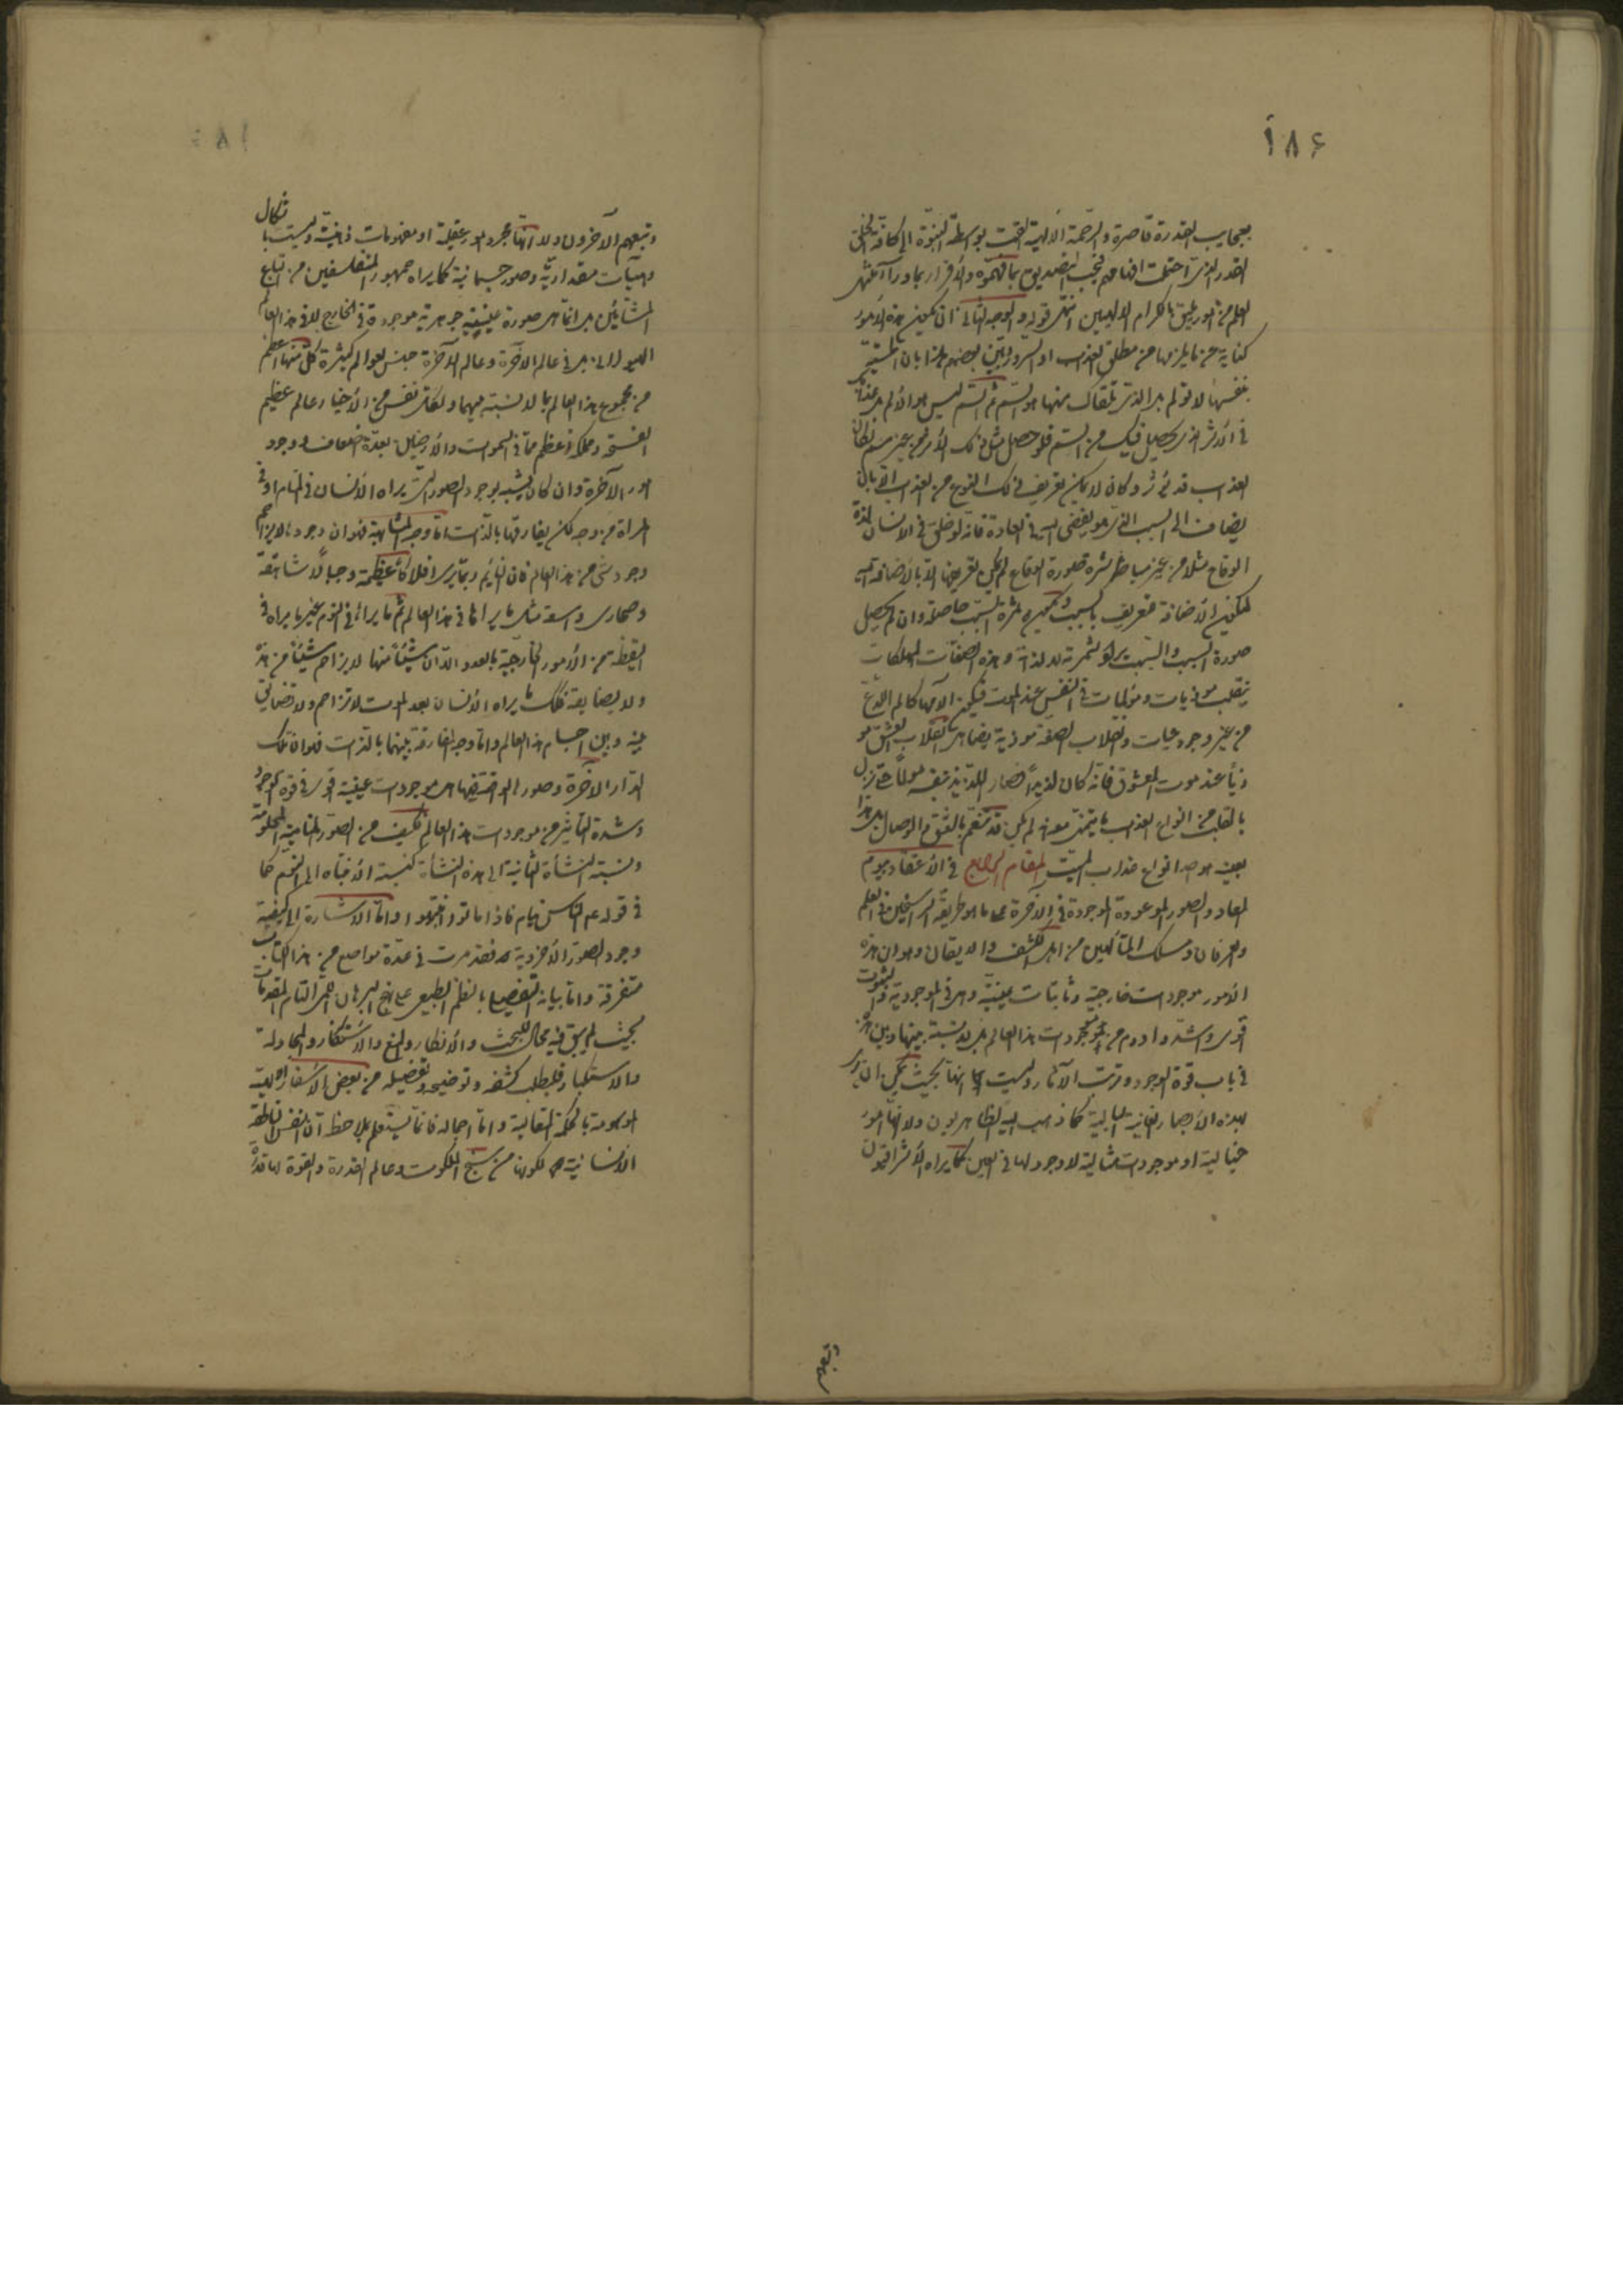 ۱۸۶
بعجایب القدرة قاصرة والرحمة الالهیة القت بواسطة النبوة الی کافة الخلق
القدر الذی احتملت افهامهم فیجب التصدیق بما فهموه والاقرار بما وراء
العلم من امور تلیق بالکرام الالهیین انتهی قوله والوجه الثانی ان تکون هذه الامور
کنایة عن ما یلزمها من مطلق العذاب او السرور
بنفسها لا تولم بل الذی تلقاک منها هو السم ثم السم لیس هو الالم بل عذابک
فی الاثر الذی یحصل فیک من السم فلو حصل مثل ذلک الاثر من غیر سم لکان
العذاب قد توفر وکان لا یمکن تعریف ذلک النوع من العذاب الا بان
یضاف الی السبب الذی هو یفضی الیه فی العادة فانه لو خلق فی الانسان لذة
الوقاع مثلا من غیر مباشرة صورة الوقاع لم یمکن تعریفها الا بالاضافة الیه
لتکون الاضافة للتعریف بالسبب وتکون ثمرة السبب حاصلة وان لم یحصل
صورة السبب والسبب یراد لثمرته لا لذاته وهذه الصفات المهلکات
ینقلب موذیات ومولمات فی النفس عند الموت فیکون الامها کالام اللدغ
من غیر وجود حیات وانقلاب الصفة موذیة یضاهی انقلاب العشق مو
ذیاً عند موت المعشوق فانه کان لذیذاً فصار اللذیذ بنفسه مولماً حتی نزل
بالقلب من انواع العذاب ما یتمنی معه ان لم یکن قد تنعم بالعشق والوصال بل هذا
بعینه هو احد انواع عذاب المیت المقام الرابع فی الاعتقاد بیوم
المعاد والصور الموعودة الموجودة فی الآخرة علی ما هو طریقة الراسخین فی العلم
والعرفان ومسلک المتألهین من اهل الکشف والایقان وهو ان هذه
الامور موجودات خارجیة وثابتات عینیة وهی فی الموجودیة والثبوت
اقوی واشد وادوم من موجودات هذا العالم بل لا نسبة بینها وبین هذه
فی باب قوة الوجود وترتب الآثار ولیست انها بحیث یمکن ان یری
بهذه الابصار الفانیة البالیة کما ذهب الیه الظاهریون ولا انها امور
خیالیة او موجودات مثالیة لا وجود لها فی العین کما یراه الاشراقیون
وتبعهم
وتبعهم الآخرون ولا انها مجرد امور عقلیة او مفهومات ذهنیة ولیست باشکال
وهیئات مقداریة وصور جسمانیة کما یراه جمهور المتفلسفین من اتباع
المشائین بل انما هی صورة عینیة جوهریة موجودة فی الخارج لا فی هذا العالم
الهیولانی بل فی عالم الآخرة وعالم الآخرة جنس لعوالم کثیرة کل منها اعظم
من مجموع هذا العالم بما لا نسبة بینهما ولکل نفس من الاخیار عالم عظیم
الفسحة ومملکة اعظم مما فی السموات والارضین بعدة اضعاف ووجود
امور الآخرة وان کان یشبه بوجود الصور التی یراه الانسان فی المنام او فی
المرآة من وجه لکن یفارقها بالذات اما وجه المشابهة فهو ان وجودها لا یزاحم
وجود شیء من هذا العالم فان النائم ربما یری افلاکاً عظیمة وجبالاً شاهقة
وصحاری واسعة مثل ما یراها فی هذا العالم ثم ما یراه فی النوم غیر ما یراه فی
الیقظة من الامور الخارجیة بالعدد الا ان شیئاً منها لا یزاحم شیئاً من هذه
ولا یضایقه فکذلک ما یراه الانسان بعد الموت لا تزاحم ولا تضایق
بینه وبین اجسام هذا العالم واما وجه المفارقة بینهما بالذات فهو ان تلک
الدار الآخرة وصور الواقعة فیها هی موجودات عینیة قویة فی قوة الوجود
وشدة التأثیر من موجودات هذا العالم فکیف من الصور المنامیة
ونسبة النشأة الثانیة الی هذه النشأة کنسبة الانتباه الی النوم کما
فی قوله عم الناس نیام فاذا ماتوا انتبهوا واما الاشارة الی کیفیة
وجود الصور الاخرویة فقد مرت فی عدة مواضع من هذا الکتاب
متفرقة واما بیانه التفصیلی بالنظم الطبیعی علی نهج البرهان التام المقدمات
بحیث لم یبق فیه مجال للبحث والانظار والمنع والاستنکار والمجادلة
والاستکبار فلیطلب کشفه وتوضیحه وتفصیله من بعض الاسفار الالهیة
الموسومة بالحکمة المتعالیة واما اجماله فانما یستعلم بملاحظة ان النفس الناطقة
الانسانیة لکونها من سنخ الملکوت وعالم القدرة والقوة لها